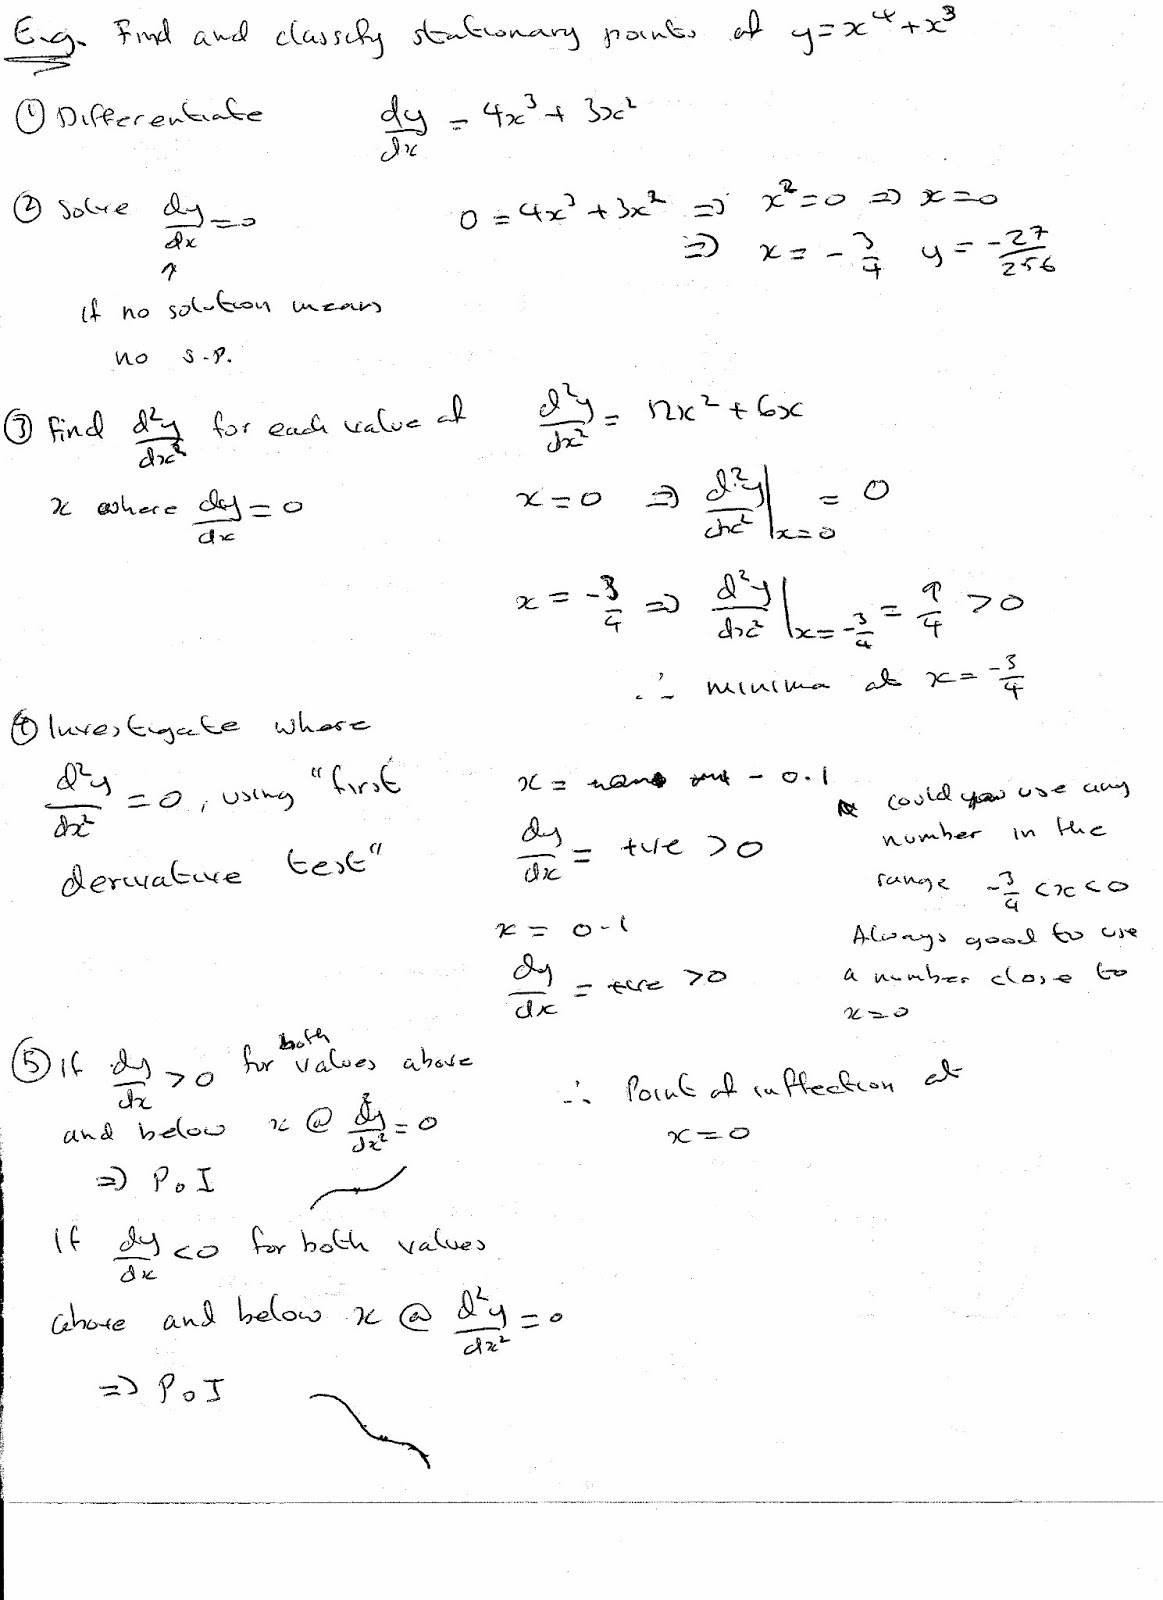 E.g. Find and classify stationary points of y=x⁴+x³
① Differentiate dy/dx = 4x³+3x²
② Solve dy/dx=0 0=4x³+3x² ⇒ x²=0 ⇒ x=0
⇒ x=-3/4 y=-27/256
↑
if no solution means
no s.p.
③ Find d²y/dx² for each value of d²y/dx² = 12x²+6x
x where dy/dx=0 x=0 ⇒ d²y/dx²|x=0 = 0
x=-3/4 ⇒ d²y/dx²|x=-3/4 = 9/4 >0
∴ minima at x=-3/4
④ Investigate where
d²y/dx²=0, using "first
derivative test"
x = -0.1
dy/dx = +ve >0
x = 0.1
dy/dx = +ve >0
could you use any
number in the
range -3/4<x<0
Always good to use
a number close to
x=0
⑤ If dy/dx>0 for both values above
and below x @ d²y/dx²=0
⇒ P.o I
∴ Point of inflection at
x=0
If dy/dx<0 for both values
above and below x @ d²y/dx²=0
⇒ P.o I